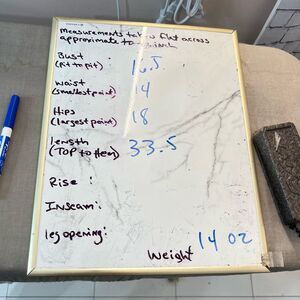 Measurements taken flat across
approximate to animal
Bust 16.5
(Pit to pit)
waist 14
(smallest point)
Hips 18
(largest point)
length 33.5
(TOP to Hem)
Rise :
Inseam:
leg opening:
Weight 14 oz